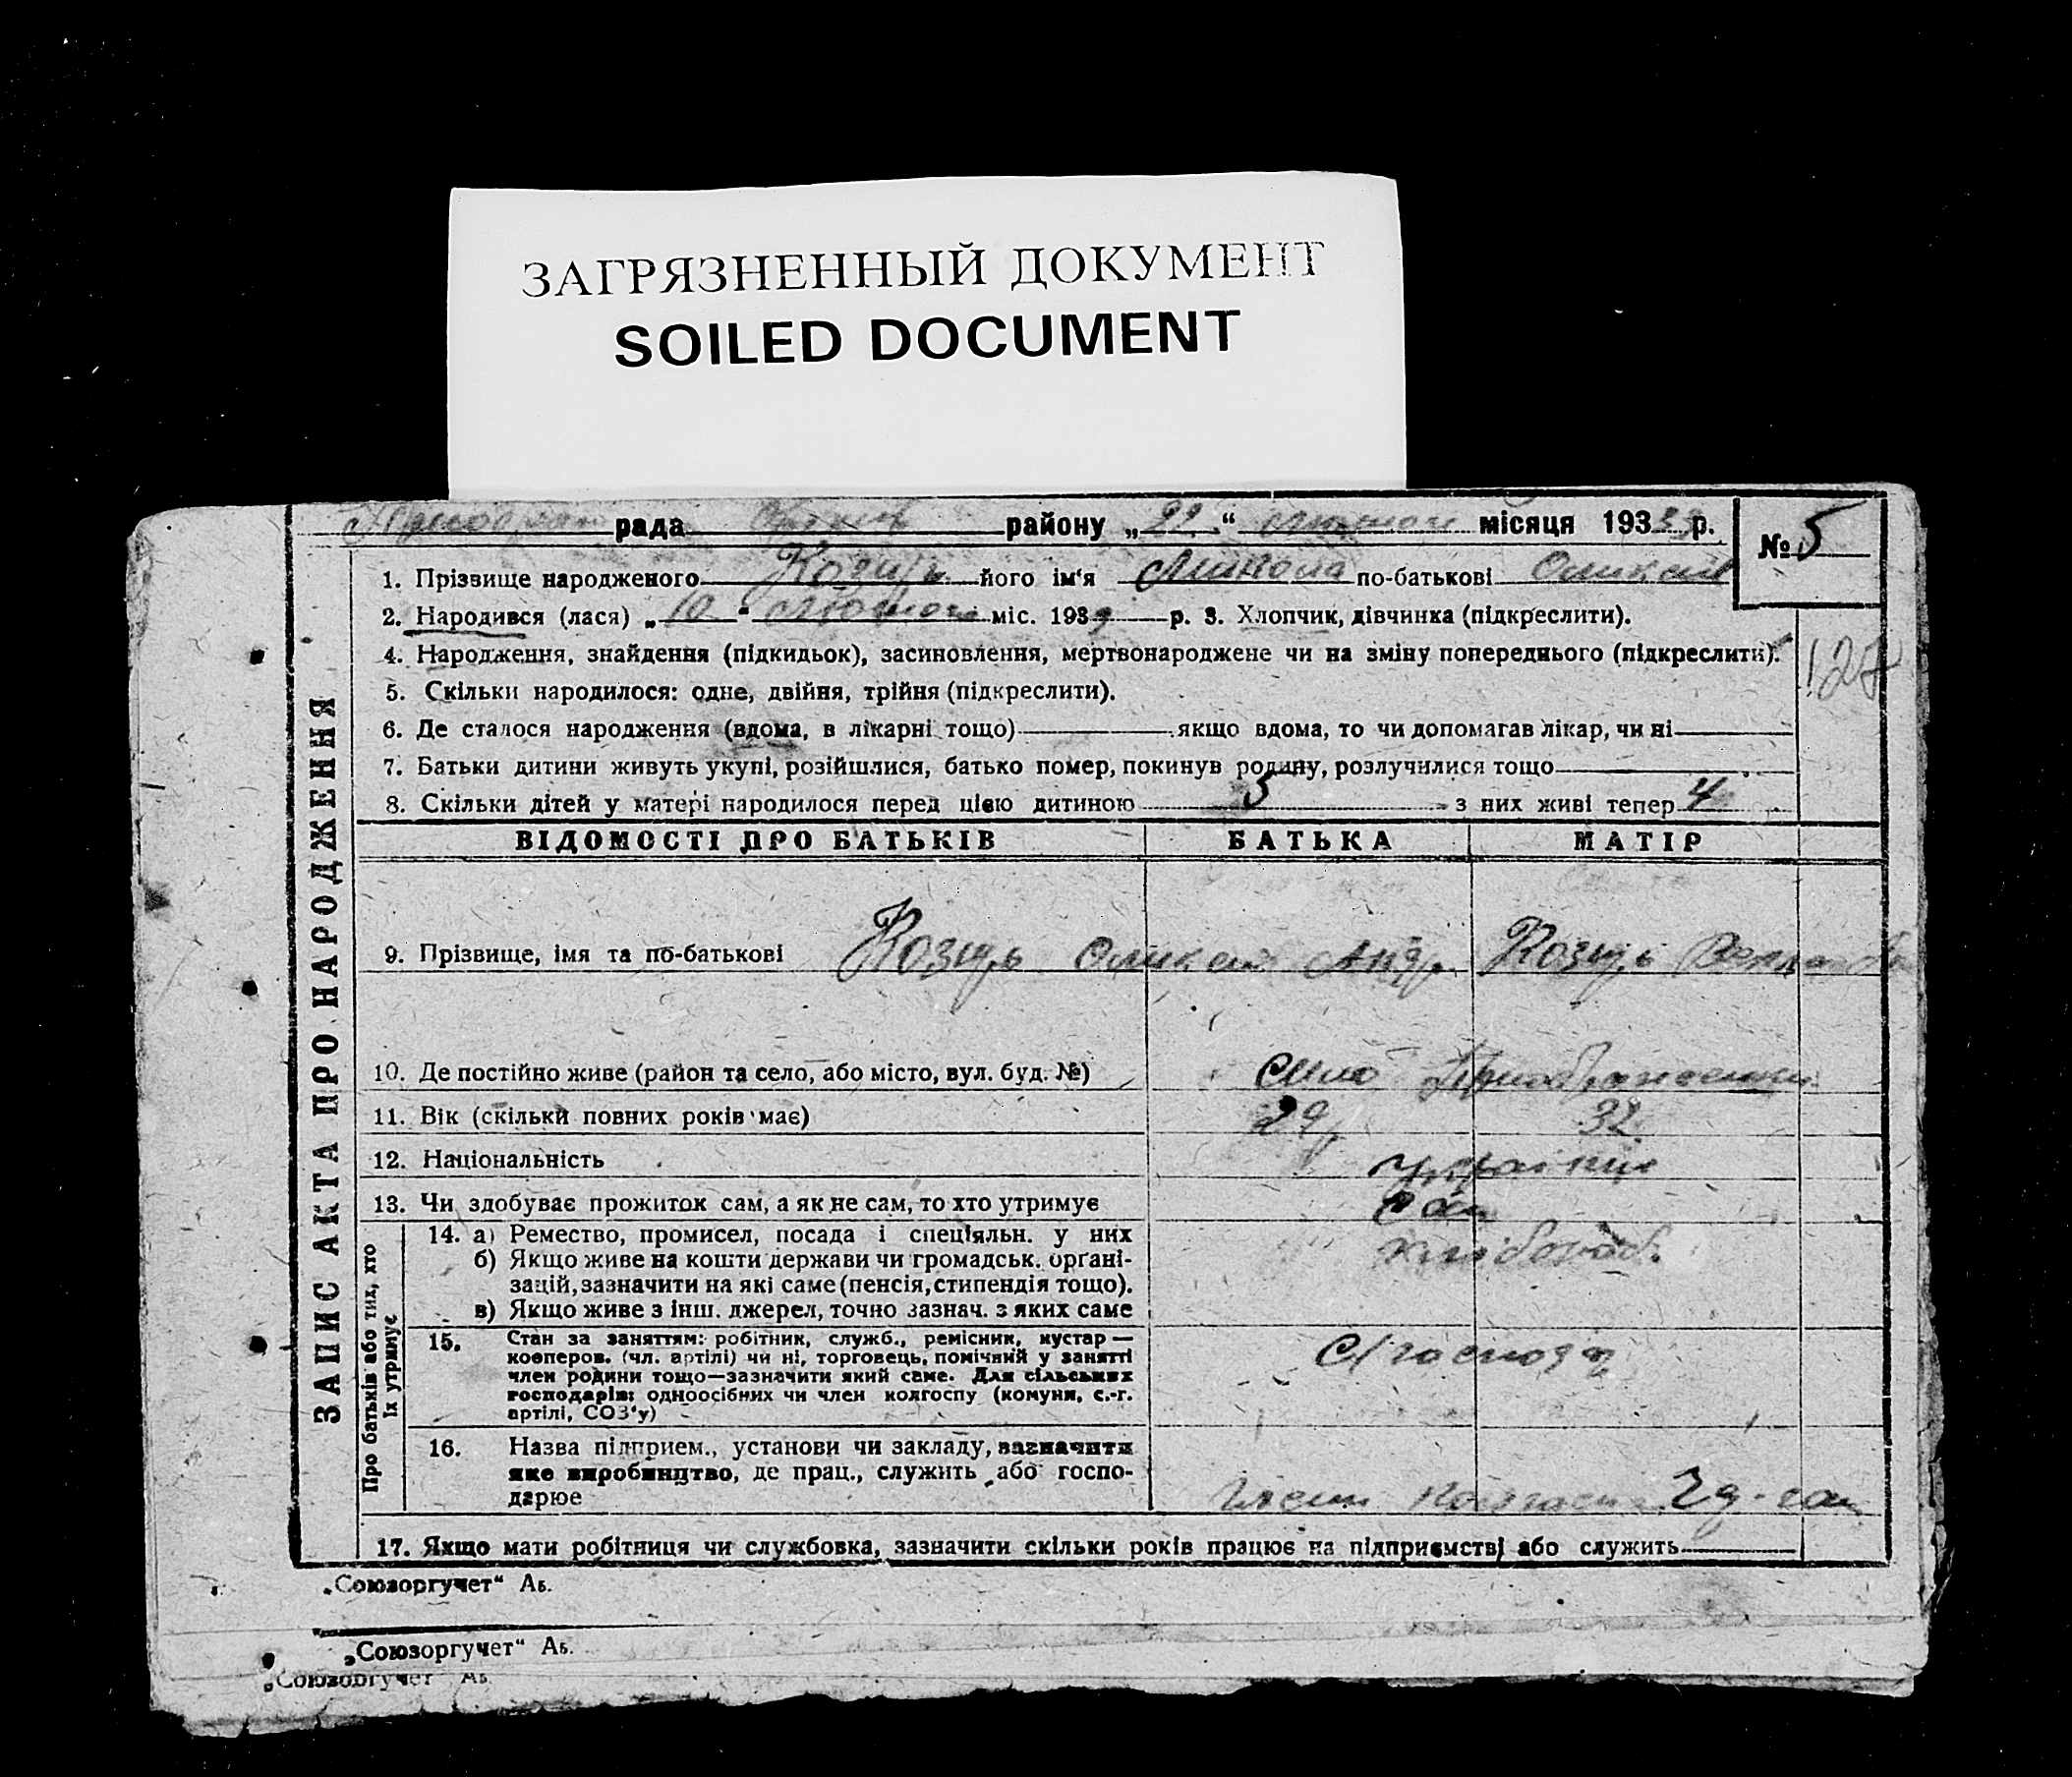 ЗАГРЯЗНЕННЫЙ ДОКУМЕНТ
SOILED DOCUMENT
рада району „22“ лютого місяця 193 р.
№ 5
1. Прізвище народженого Козирь його ім'я Микола по-батькові
2. Народився (лася) „10“ лютого міс. 193 р. 3. Хлопчик, дівчинка (підкреслити).
4. Народження, знайдення (підкидьок), засиновлення, мертвонароджене чи на зміну попереднього (підкреслити).
127
5. Скільки народилося: одне, двійня, трійня (підкреслити).
6. Де сталося народження (вдома, в лікарні тощо) якщо вдома, то чи допомагав лікар, чи ні
7. Батьки дитини живуть укупі, розійшлися, батько помер, покинув родину, розлучилися тощо
8. Скільки дітей у матері народилося перед цією дитиною 5 з них живі тепер 4
ВІДОМОСТІ ПРО БАТЬКІВ БАТЬКА МАТІР
9. Прізвище, імя та по-батькові Козирь Андр. Козирь
10. Де постійно живе (район та село, або місто, вул. буд. №) село
11. Вік (скільки повних років має) 29 32
12. Національність українці
13. Чи здобуває прожиток сам, а як не сам, то хто утримує сам
14. а) Ремество, промисел, посада і спеціяльн. у них хлібороб.
б) Якщо живе на кошти держави чи громадськ. органі-
зацій, зазначити на які саме (пенсія, стипендія тощо).
в) Якщо живе з інш. джерел, точно зазнач. з яких саме
15. Стан за заняттям: робітник, служб., ремісник, кустар —
кооперов. (чл. артілі) чи ні, торговець, помічний у занятті
член родини тощо—зазначити який саме. Для сільських
господарів: одноосібних чи член колгоспу (комуни, с.-г.
артілі, СОЗ'у)
16. Назва підприєм., установи чи закладу, зазначити
яке виробництво, де прац., служить або госпо-
дарює
17. Якщо мати робітниця чи службовка, зазначити скільки років працює на підприємстві або служить
ЗАПИС АКТА ПРО НАРОДЖЕННЯ
Про батьків або тих, хто
їх утримує
„Союзоргучет“ Аб.
„Союзоргучет“ Аб.
„Союзоргучет“ Аб.